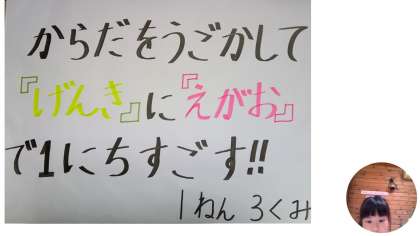 からだをうごかして
『げんき』に『えがお』
で1にちすごす!!
1ねん 3くみ